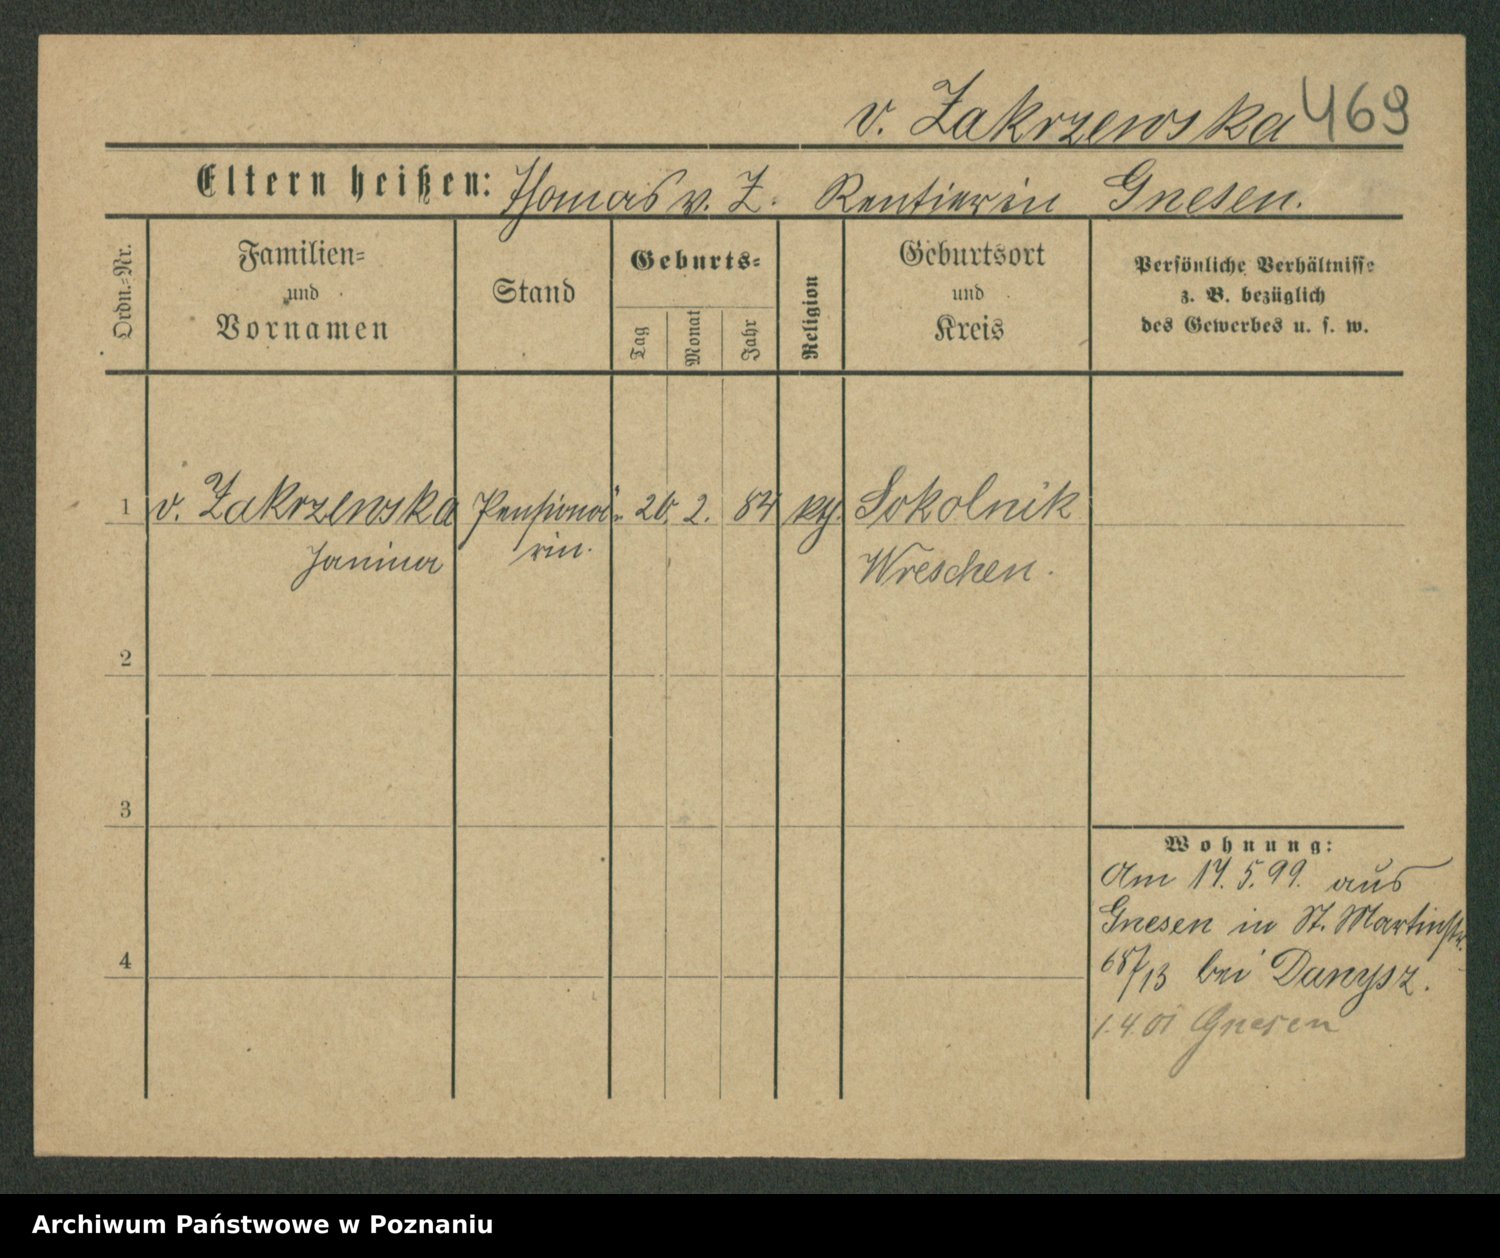 v. Zakrzewska 469
Eltern heißen: Thomas v. Z. Rentier in Gnesen.
Ordn.-Nr.
Familien-
und
Vornamen
Stand
Geburts-
Tag
Monat
Jahr
Religion
Geburtsort
und
Kreis
Persönliche Verhältnisse
z. B. bezüglich
des Gewerbes u. s. w.
1 v. Zakrzewska Pensionä- 20. 2. 84 Sokolnik
Janina rin. Wreschen.
2
3
Wohnung:
Am 17. 5. 99. aus
Gnesen in St. Martinstr.
4 68/13 bei Danysz.
1.4.01 Gnesen
Archiwum Państwowe w Poznaniu